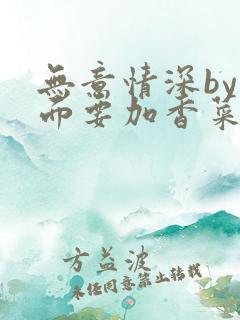 無意情深by
而要加香菜
方益波
未经同意禁止转载